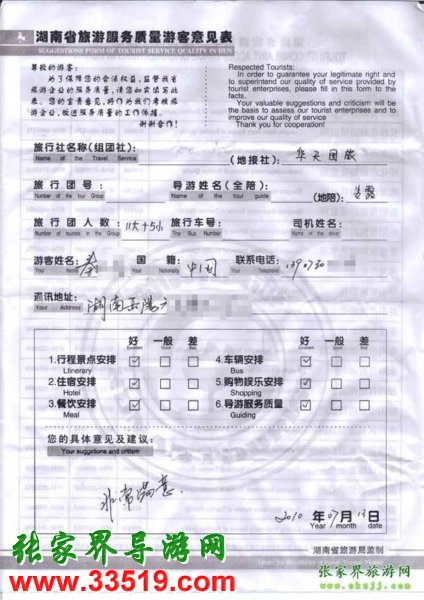 湖南省旅游服务质量游客意见表
SUGGESTIONS FORM OF TOURIST SERVICE QUALITY IN HUN
尊敬的游客:
为了保障您的合法权益,监督我省
旅游企业的服务质量,请您如实填写此
表。您的宝贵意见,将作为我们考核旅
游企业,改进服务质量的工作依据。
谢谢合作!
Respected Tourists:
In order to guarantee your legitimate right and
to superintend our quality of service provided by
tourist enterprises, please fill in this form to the
facts.
Your valuable suggestions and criticism will be
the basis to assess our tourist enterprises and to
improve our quality of service
Thank you for cooperation!
旅行社名称(组团社): (地接社): 华天国旅
Name of the Travel Service
旅行团号: 导游姓名(全陪): (地陪):
Number of the tour Group Name of the tour guide
旅行团人数: 11大+5小 旅行车号: 司机姓名:
Number of tourists in the Group The Bus Number Name of the driver
游客姓名: 秦 国籍: 中国 联系电话: 1390730
Your Name Your Nationality Your Telephone
通讯地址: 湖南岳阳市
Your Address
好 一般 差 好 一般 差
Excellent Good Bad Excellent Good Bad
1.行程景点安排 ☑ □ □ 4.车辆安排 ☑ □ □
Ltinerary Bus
2.住宿安排 ☑ □ □ 5.购物娱乐安排 ☑ □ □
Hotel Shopping
3.餐饮安排 ☑ □ □ 6.导游服务质量 ☑ □ □
Meal Guiding
您的具体意见及建议:
Your suggetions and critism
非常满意
2010 年 07 月 13 日
Year month day
湖南省旅游局监制
张家界导游网
www.33519.com
张家界旅游网
www.okzjj.com